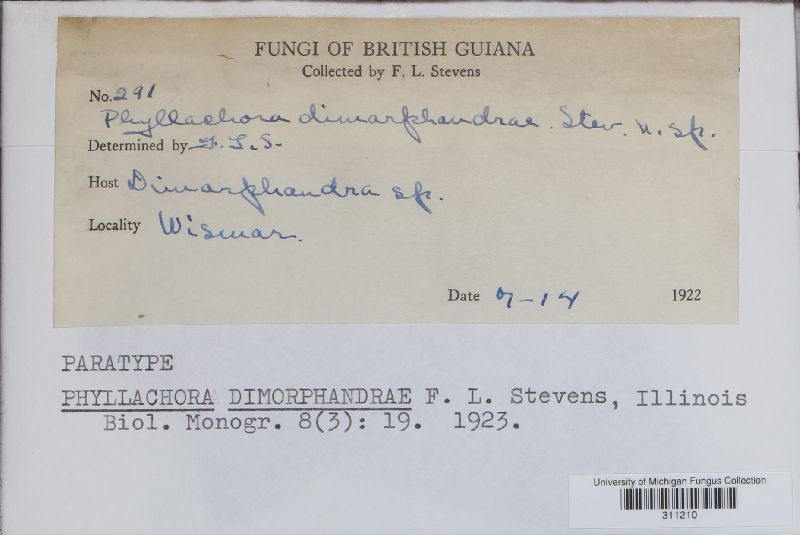 FUNGI OF BRITISH GUIANA
Collected by F. L. Stevens
No. 291
Phyllachora dimorphandrae. Stev. n. sp.
Determined by F. L. S.
Host Dimorphandra sp.
Locality Wismar.
Date 7-14 1922
PARATYPE
PHYLLACHORA DIMORPHANDRAE F. L. Stevens, Illinois
Biol. Monogr. 8(3): 19. 1923.
University of Michigan Fungus Collection
311210